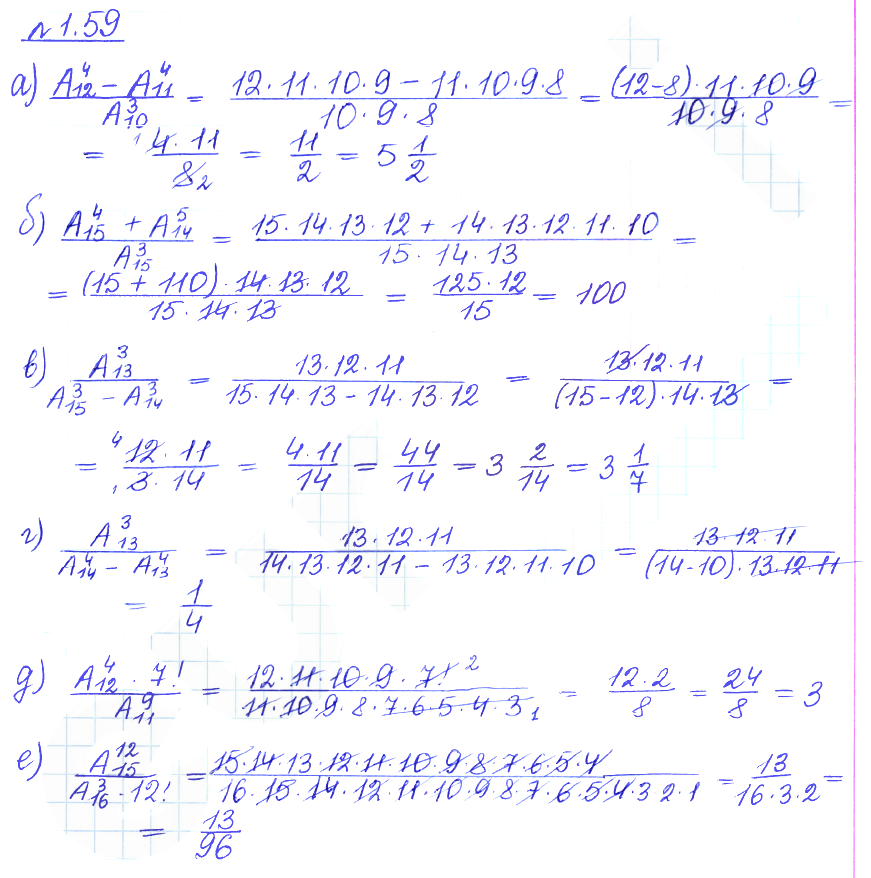 № 1.59
а) (A₁₂⁴ − A₁₁⁴)/A₁₀³ = (12·11·10·9 − 11·10·9·8)/(10·9·8) = ((12−8)·11·10·9)/(10·9·8) =
= (4·11)/8 = 11/2 = 5 1/2
б) (A₁₅⁴ + A₁₄⁵)/A₁₅³ = (15·14·13·12 + 14·13·12·11·10)/(15·14·13) =
= ((15 + 110)·14·13·12)/(15·14·13) = (125·12)/15 = 100
в) A₁₃³/(A₁₅³ − A₁₄³) = (13·12·11)/(15·14·13 − 14·13·12) = (13·12·11)/((15−12)·14·13) =
= (12·11)/(3·14) = (4·11)/14 = 44/14 = 3 2/14 = 3 1/7
г) A₁₃³/(A₁₄⁴ − A₁₃⁴) = (13·12·11)/(14·13·12·11 − 13·12·11·10) = (13·12·11)/((14−10)·13·12·11)
= 1/4
д) (A₁₂⁴ · 7!)/A₁₁⁹ = (12·11·10·9·7!)/(11·10·9·8·7·6·5·4·3) = (12·2)/8 = 24/8 = 3
е) A₁₅¹²/(A₁₆³ · 12!) = (15·14·13·12·11·10·9·8·7·6·5·4)/(16·15·14·12·11·10·9·8·7·6·5·4·3·2·1) = 13/(16·3·2) =
= 13/96